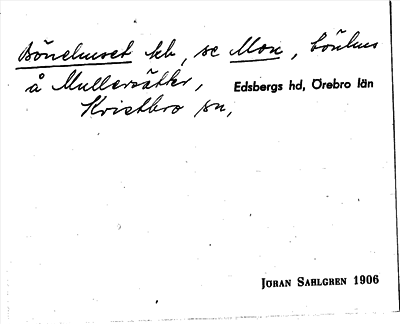 Bönehuset kb, se Mon, bönhus
å Mullersätter, Edsbergs hd, Örebro län
Kvistbro sn,
JÖRAN SAHLGREN 1906